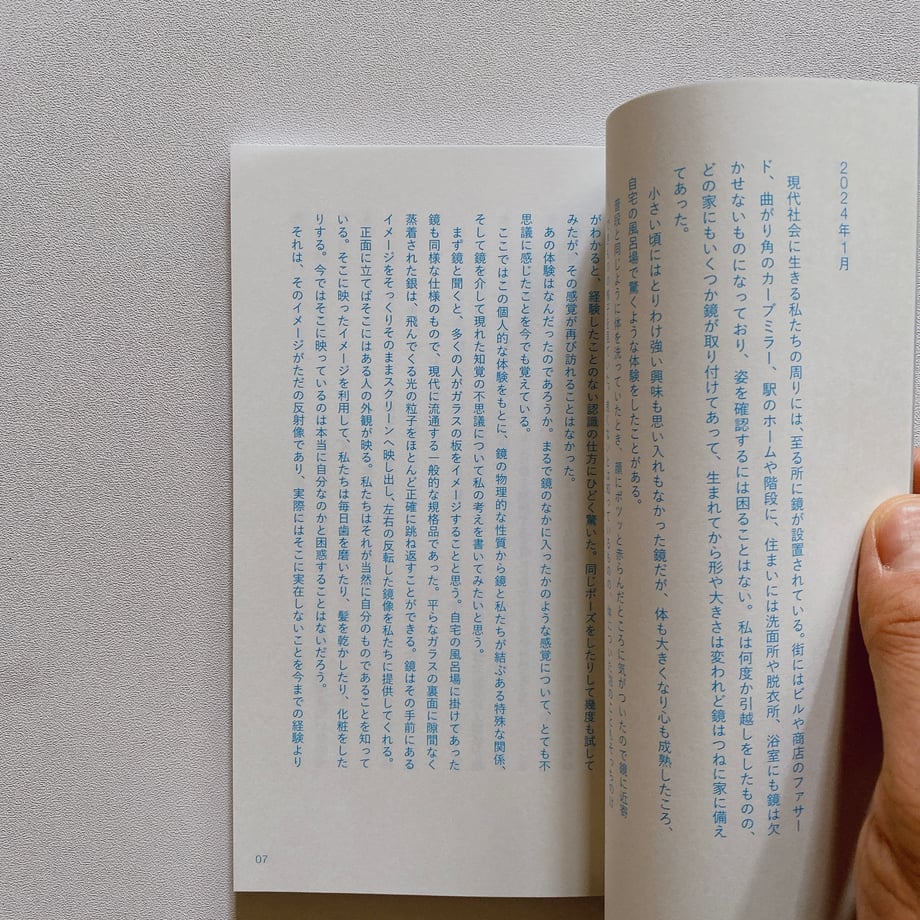 2024年1月
現代社会に生きる私たちの周りには、至る所に鏡が設置されている。街にはビルや商店のファサー
ド、曲がり角のカーブミラー、駅のホームや階段に、住まいには洗面所や脱衣所、浴室にも鏡は欠
かせないものになっており、姿を確認するには困ることはない。私は何度か引越しをしたものの、
どの家にもいくつか鏡が取り付けてあって、生まれてから形や大きさは変われど鏡はつねに家に備え
てあった。
小さい頃にはとりわけ強い興味も思い入れもなかった鏡だが、体も大きくなり心も成熟したころ、
自宅の風呂場で驚くような体験をしたことがある。
普段と同じように体を洗っていたとき、顔にポツッと赤らんだところに気がついたので鏡に近寄
がわかると、経験したことのない認識の仕方にひどく驚いた。同じポーズをしたりして幾度も試して
みたが、その感覚が再び訪れることはなかった。
あの体験はなんだったのであろうか。まるで鏡のなかに入ったかのような感覚について、とても不
思議に感じたことを今でも覚えている。
ここではこの個人的な体験をもとに、鏡の物理的な性質から鏡と私たちが結ぶある特殊な関係、
そして鏡を介して現れた知覚の不思議について私の考えを書いてみたいと思う。
まず鏡と聞くと、多くの人がガラスの板をイメージすることと思う。自宅の風呂場に掛けてあった
鏡も同様な仕様のもので、現代に流通する一般的な規格品であった。平らなガラスの裏面に隙間なく
蒸着された銀は、飛んでくる光の粒子をほとんど正確に跳ね返すことができる。鏡はその手前にある
イメージをそっくりそのままスクリーンへ映し出し、左右の反転した鏡像を私たちに提供してくれる。
正面に立てばそこにはある人の外観が映る。私たちはそれが当然に自分のものであることを知って
いる。そこに映ったイメージを利用して、私たちは毎日歯を磨いたり、髪を乾かしたり、化粧をした
りする。今ではそこに映っているのは本当に自分なのかと困惑することはないだろう。
それは、そのイメージがただの反射像であり、実際にはそこに実在しないことを今までの経験より
07